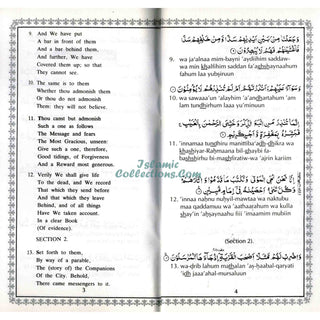 9. And We have put
A bar in front of them
And a bar behind them,
And further, We have
Covered them up; so that
They cannot see.
10. The same is to them
Whether thou admonish them
Or thou do not admonish
Them: they will not believe.
11. Thou canst but admonish
Such a one as follows
The Message and fears
The Most Gracious, unseen:
Give such a one, therefore,
Good tidings, of Forgiveness
And a Reward most generous.
12. Verily We shall give life
To the dead, and We record
That which they send before
And that which they leave
Behind, and of all things
Have We taken account.
In a clear Book
(Of evidence).
SECTION 2.
13. Set forth to them,
By way of a parable,
The (story of) the Companions
Of the City. Behold,
There came messengers to it.
3
وَجَعَلْنَا مِنْ بَيْنِ أَيْدِيهِمْ سَدًّا وَمِنْ خَلْفِهِمْ سَدًّا
فَأَغْشَيْنَاهُمْ فَهُمْ لَا يُبْصِرُونَ
9. wa ja'alnaa mim-bayni 'aydiihim saddaw-
wa min khalfihim saddan fa'aghshaynaahum
fahum laa yubsiruun
10. wa sawaaa'un 'alayhim 'a'andhartahum 'am
lam tundhirhum laa yu'minuun
11. 'innamaa tundhiru manittiba'adh-dhikra wa
khashiyar-Rahmaana bil ghaybi fa-
bashshirhu bi-maghfiratiw-wa 'ajrin kariim
12. 'innaa nahnu nuhyil-mawtaa wa naktubu
maa qaddamuu wa 'aathaarahum wa kulla
shay'in 'ahsaynaahu fiii 'imaamim mubiin
(Section 2).
13. wa-drib lahum mathalan 'as-haabal-qaryati
'idh jaaa'ahal-mursaluun
4
Islamic
Collections.Com